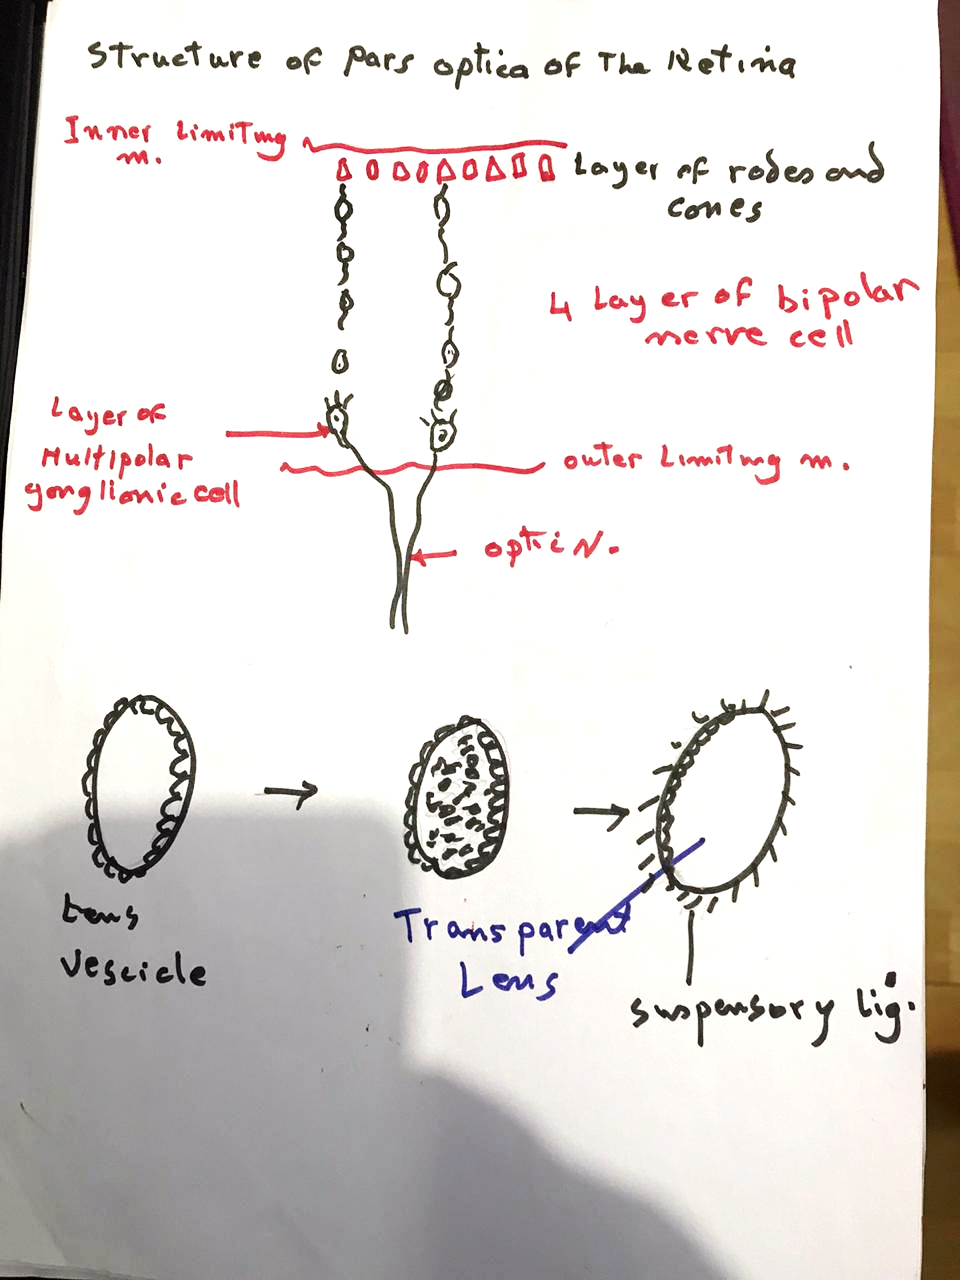 Structure of Pars optica of The Retina
Inner Limiting
m.
Layer of rodes and
cones
4 Layer of bipolar
nerve cell
Layer of
Multipolar
ganglionic cell
outer Limiting m.
optic N.
Lens
vescicle
Transparent
Lens
suspensory lig.